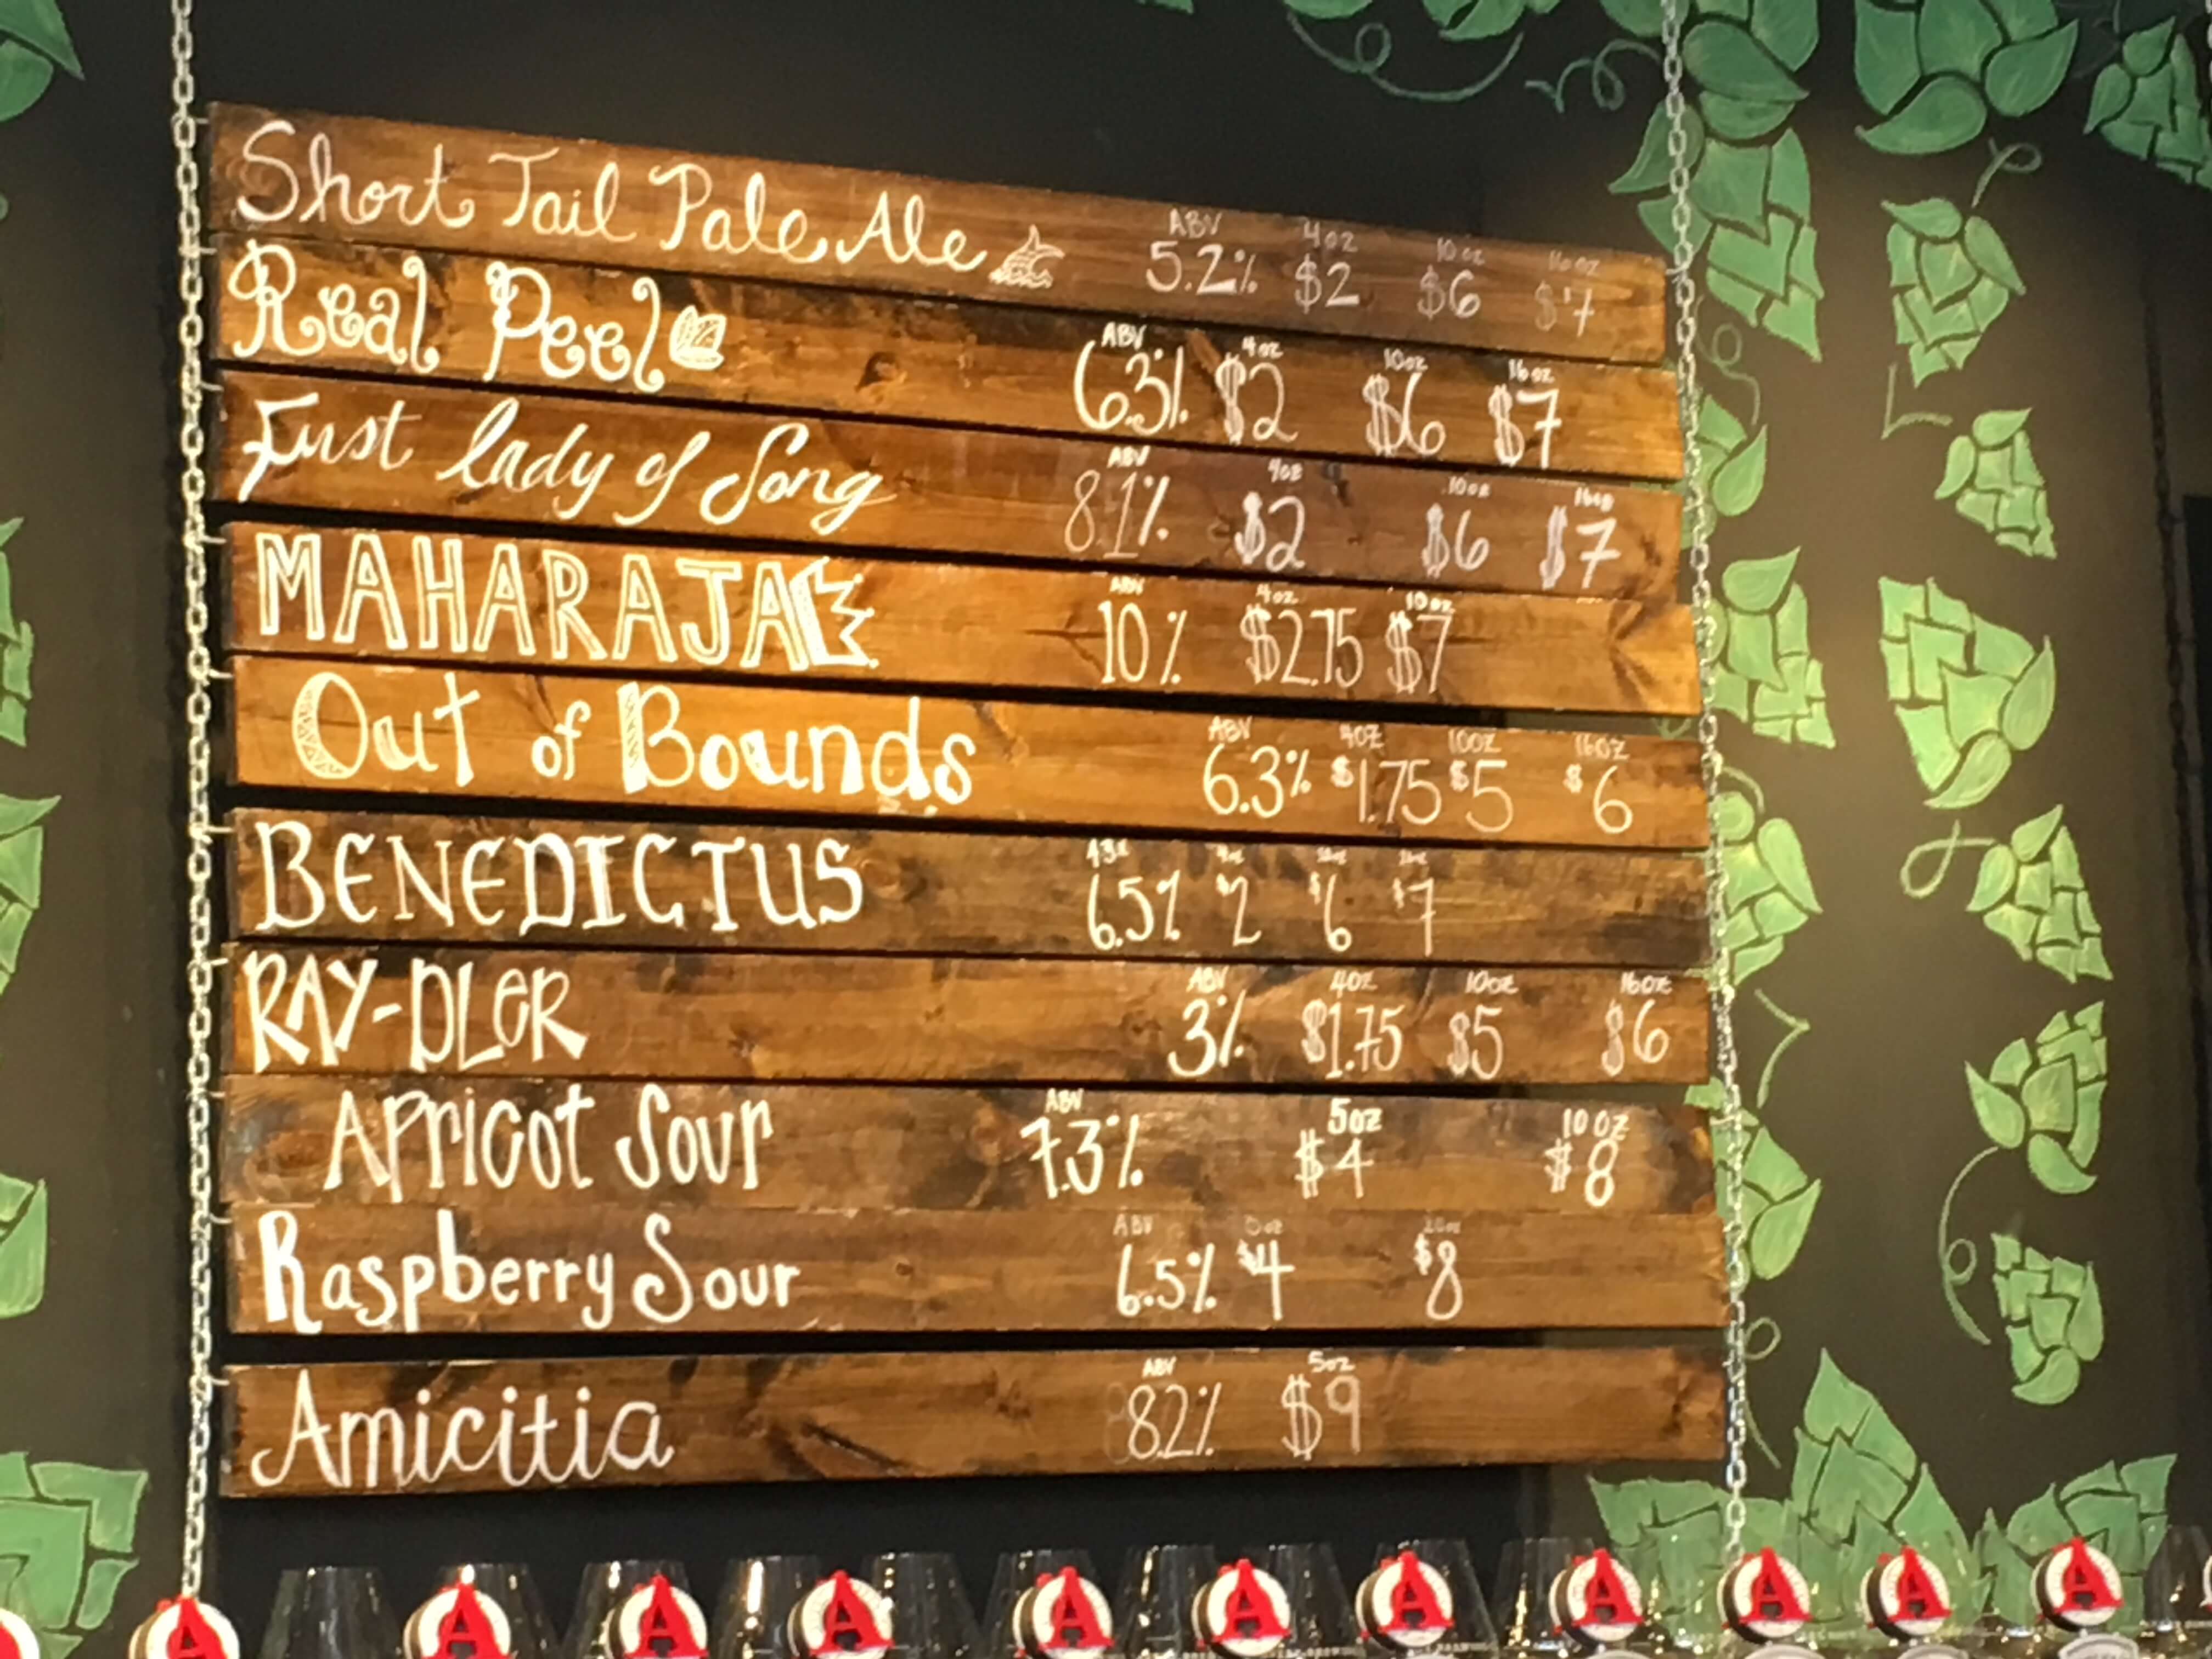 Short Tail Pale Ale ABV 5.2% 4oz $2 10oz $6 16oz $7
Real Peel ABV 6.3% 4oz $2 10oz $6 16oz $7
First lady of Song ABV 8.1% 4oz $2 10oz $6 16oz $7
MAHARAJA ABV 10% 4oz $2.75 10oz $7
Out of Bounds ABV 6.3% 4OZ $1.75 10OZ $5 16OZ $6
BENEDICTUS 6.5% $2 $6 $7
RAY-DLER ABV 3% 4OZ $1.75 10OZ $5 16OZ $6
APRICOT SOUR ABV 7.3% 5OZ $4 10OZ $8
Raspberry Sour ABV 6.5% $4 $8
Amicitia ABV 8.2% 5OZ $9
A A A A A A A A A A A